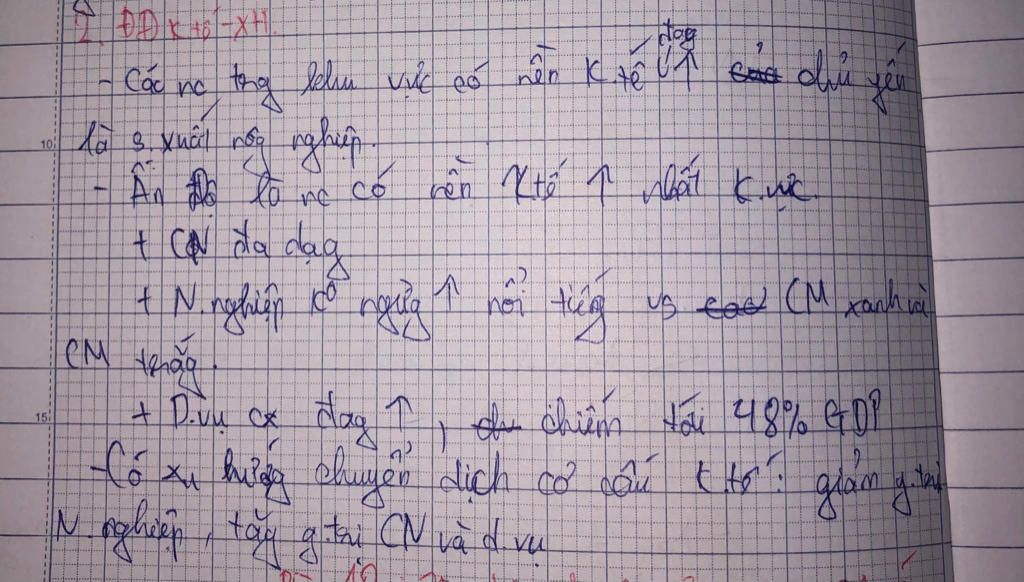 2. ĐĐ K tế - XH.
- Các nc trg khu vực có nền K.tế đag ↑ chủ yếu
là s.xuất nôg nghiệp.
- Ấn Độ là nc có nền K tế ↑ nhất k.vực.
+ CN đa dạg
+ N.nghiệp kº ngừg ↑ nổi tiếg vs CM xanh và
CM trắg.
+ D.vụ cx đag ↑, chiếm tới 48% GDP
- Có xu hướg chuyển dịch cơ cấu k.tế: giảm g.trị
N.nghiệp, tăg g.trị CN và d.vụ